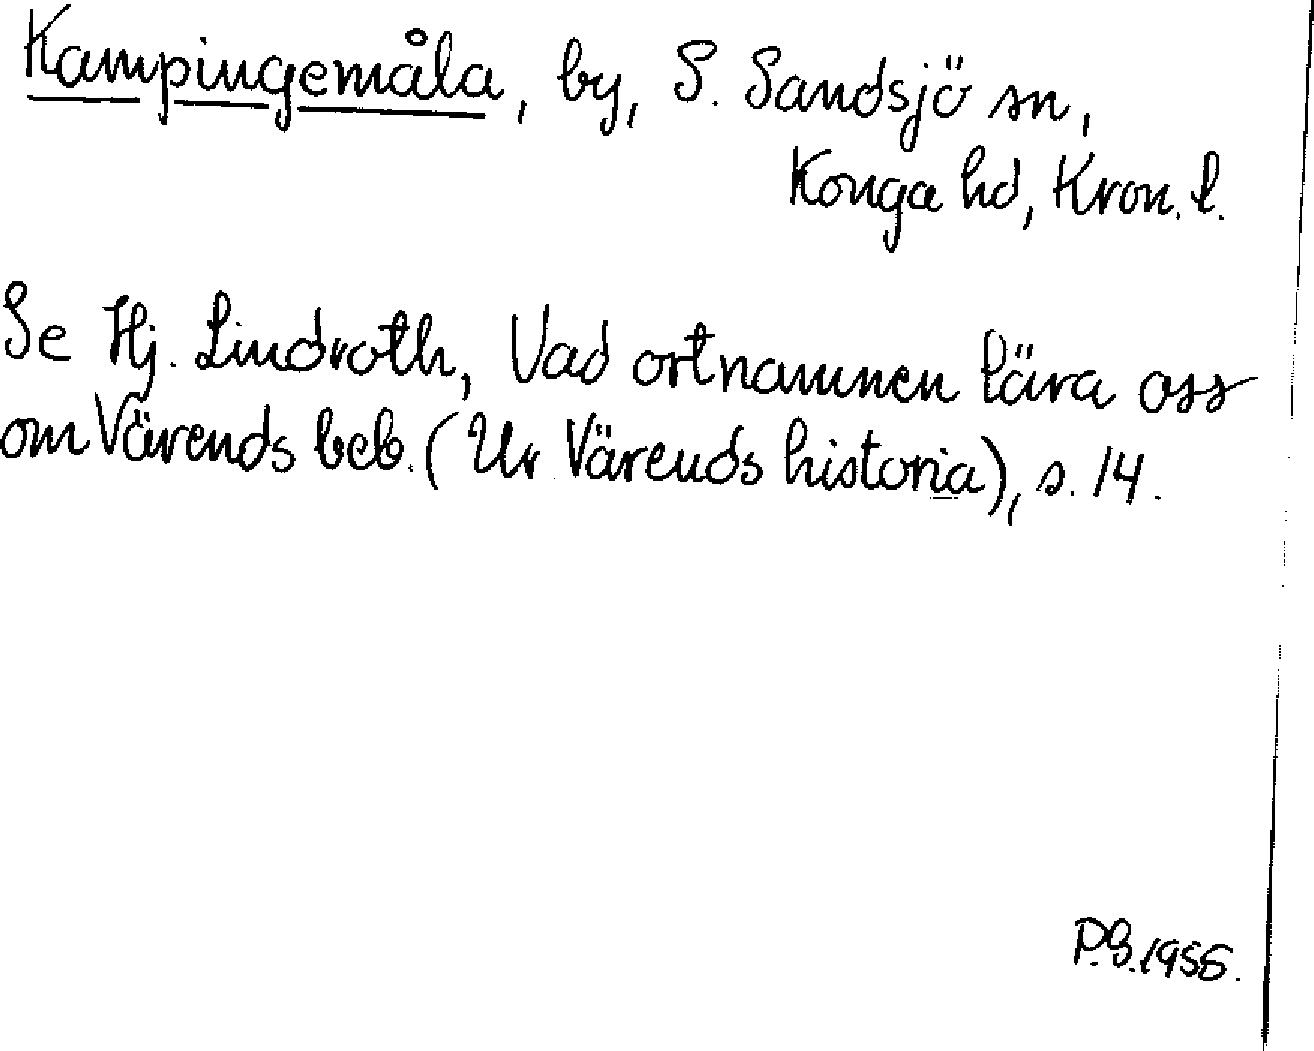 Kampingemåla, by, S. Sandsjö sn,
Konga hd, Kron. l.
Se Hj. Lindroth, Vad ortnamnen lära oss
om Värends beb. (Ur Värends historia), s. 14.
P.G. 1956.